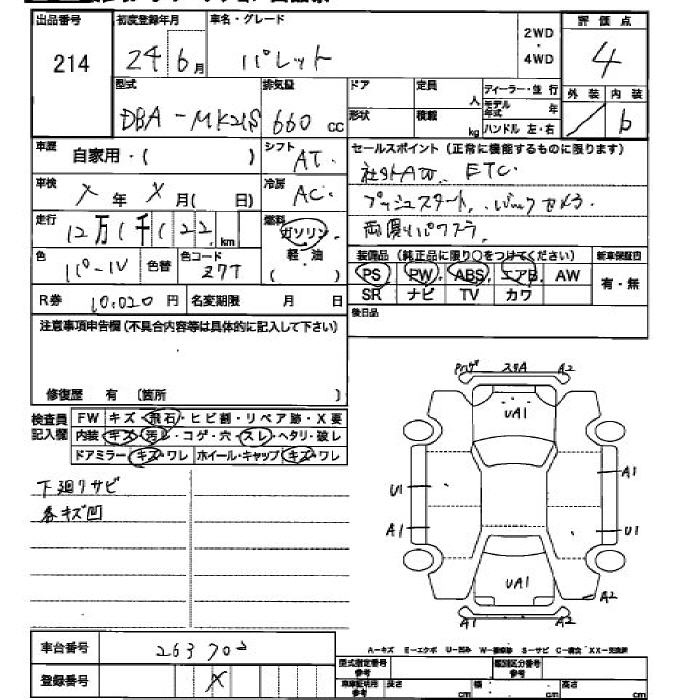 出品番号 初度登録年月 車名・グレード 2WD・4WD 評価点
214 24 6月 パレット 4
型式 排気量 ドア 定員 人 ディーラー・並行 外装 内装
DBA-MK21S 660 cc 形状 積載 kg モデル年式 年 ハンドル 左・右 b
車歴 自家用・( ) シフト AT. セールスポイント (正常に機能するものに限ります)
社外AW. ETC.
車検 年 月( 日) 冷房 AC. プッシュスタート. バックカメラ.
走行 12万1千122 km 燃料 ガソリン・軽・油 ( )
色 パール 色替 色コード Z7T 装備品 (純正品に限り○をつけてください) 新車保証書
PS PW ABS エアB AW 有・無
R券 10,020円 名変期限 月 日 SR ナビ TV カワ
注意事項申告欄(不具合内容等は具体的に記入して下さい) 後日品
修復歴 有 〔箇所 〕
検査員記入欄 FW キズ・飛石・ヒビ割・リペア跡・X要
内装 キズ・汚レ・コゲ・穴・スレ・ヘタリ・破レ
ドアミラー キズ・ワレ ホイール・キャップ キズ・ワレ
下廻りサビ
各キズ凹
A2
UA1
A1
U1
A1 U1
UA1
A2
A1 A2
車台番号 263702
登録番号 X
A-キズ E-エクボ U-凹み W-補修跡 S-サビ C-腐食 XX-交換済
型式指定番号 参考 類別区分番号 参考
車庫証明用 参考 長さ cm 幅 cm 高さ cm